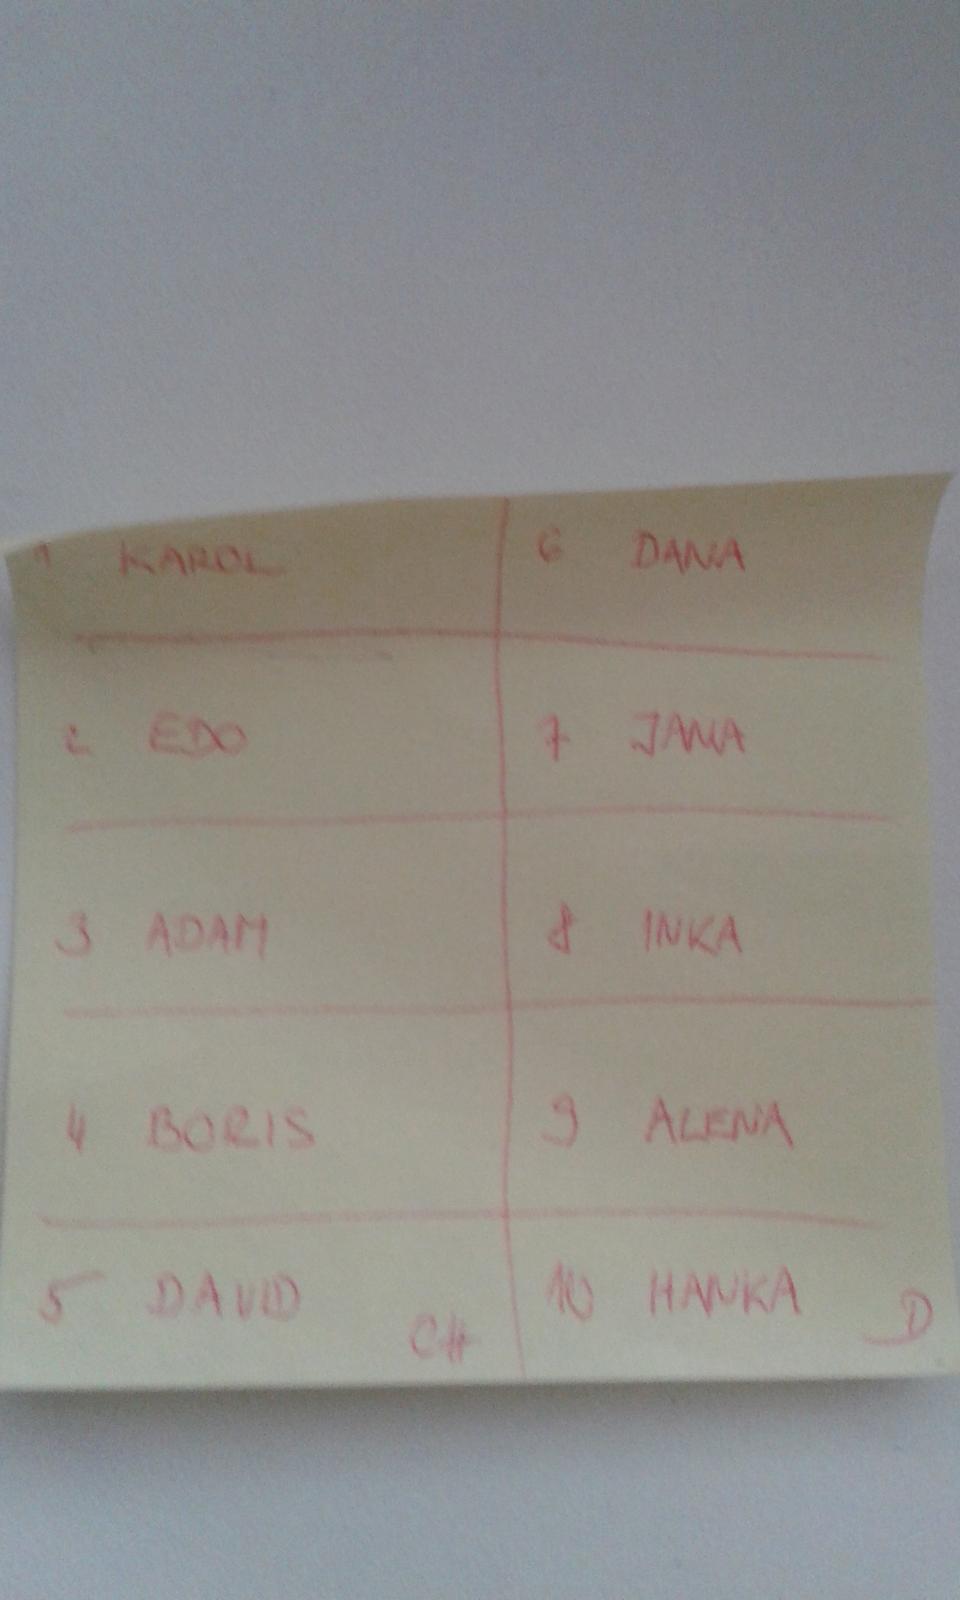 1 KAROL
2 EDO
3 ADAM
4 BORIS
5 DAVID
CH
6 DANA
7 JANA
8 INKA
9 ALENA
10 HANKA
D